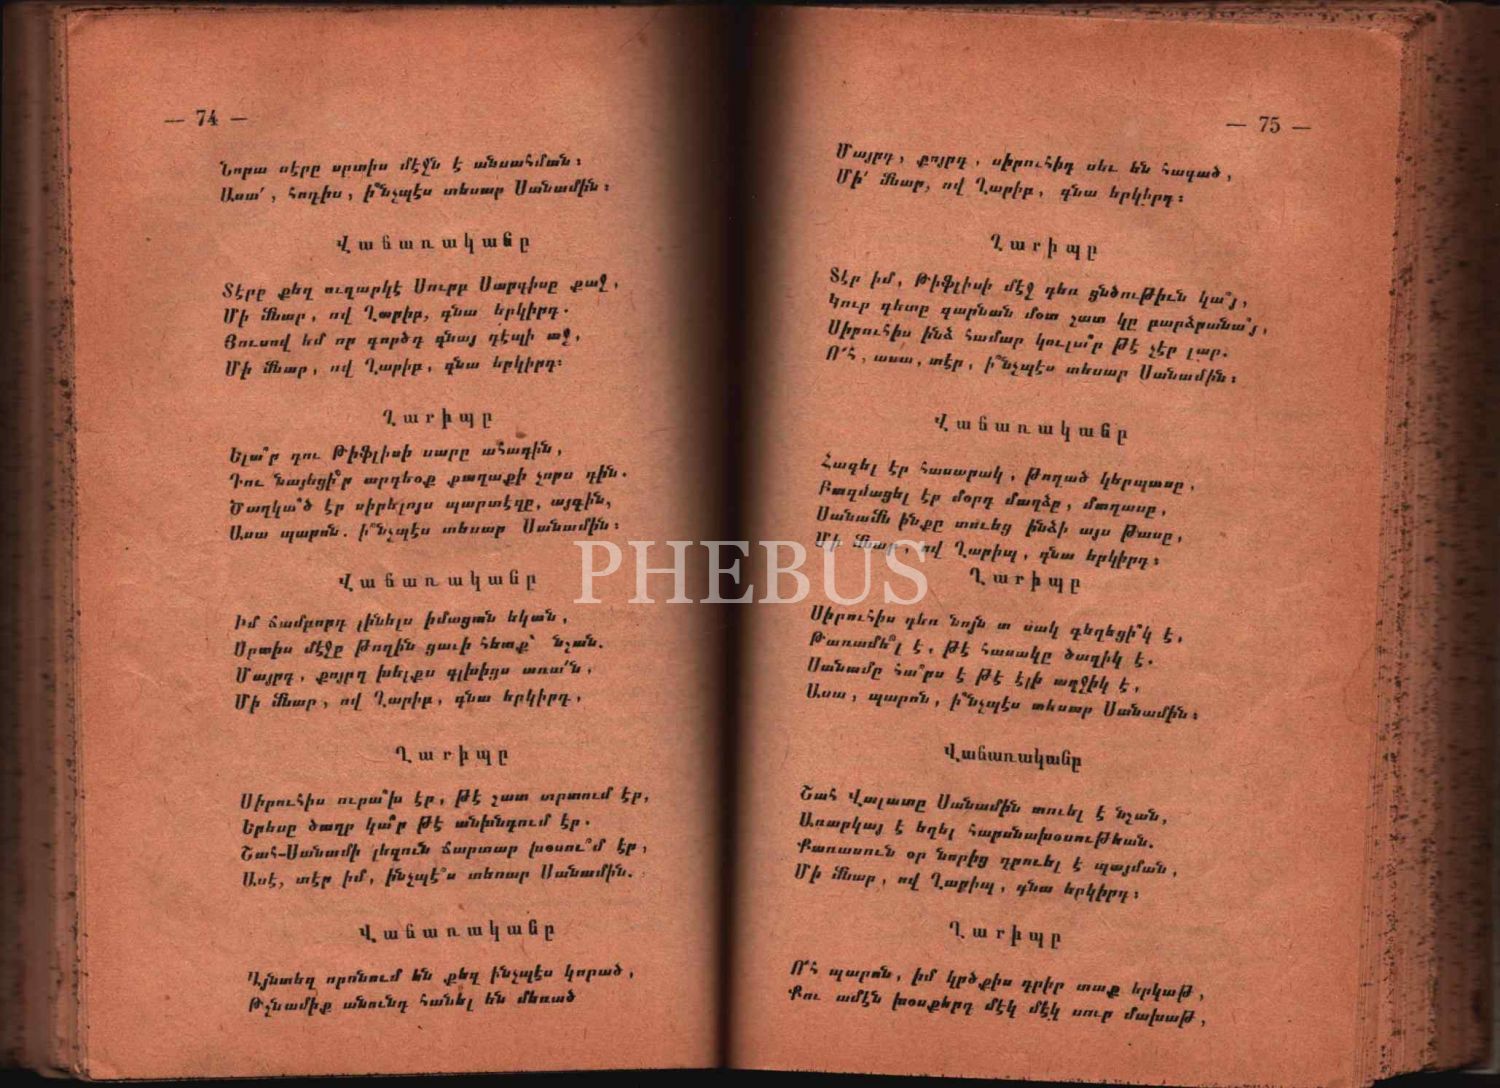 — 74 —
Նորա սէրը սրտիս մէջն է անսահման։
Ասա՛, հոգիս, ի՞նչպէս տեսար Սանամին։
Վաճառականը
Տէրը քեզ ուղարկէ Սուրբ Սարգիսը քաջ,
Մի մնար, ով Ղարիբ, գնա երկիրդ.
Յուսով եմ որ գործդ գնայ դէպի աջ,
Մի մնար, ով Ղարիբ, գնա երկիրդ։
Ղարիպը
Ելա՞ր դու Թիֆլիսի սարը ահագին,
Դու նայեցի՞ր արդեօք քաղաքի չորս դին.
Ծաղկա՞ծ էր սիրելոյս պարտէզը, այգին,
Ասա պարոն. ի՞նչպէս տեսար Սանամին։
Վաճառականը
Իմ ճամբորդ լինելս իմացան եկան,
Սրտիս մէջը թողին ցաւի հետք՝ նշան.
Մայրդ, քոյրդ խելքս գլխիցս առա՛ն,
Մի մնար, ով Ղարիբ, գնա երկիրդ,
Ղարիպը
Սիրուհիս ուրա՞խ էր, թէ շատ տրտում էր,
Երեսը ծաղր կա՞ր թէ անխնդում էր.
Շահ-Սանամի լեզուն ճարտար խօսու՞մ էր,
Ասէ, տէր իմ, ինչպէ՞ս տեսար Սանամին.
Վաճառականը
Այնտեղ որոնում են քեզ ինչպէս կորած,
Թշնամիք անունդ հանել են մեռած
— 75 —
Մայրդ, քոյրդ, սիրուհիդ սեւ են հագած,
Մի՛ մնար, ով Ղարիբ, գնա երկիրդ։
Ղարիպը
Տէր իմ, Թիֆլիսի մէջ դեռ ցնծութիւն կա՞յ,
Կուր գետը գարնան մօտ շատ կը բարձրանա՞յ,
Սիրուհիս ինձ համար կուլա՞ր թէ չէր լար.
Ո՛հ, ասա, տէր, ի՞նչպէս տեսար Սանամին։
Վաճառականը
Հագել էր հասարակ, թողած կերպասը,
Բազմացել էր մօրդ մաղձը, մտղասը,
Սանամն ինքը տուեց ինձի այս թասը,
Մի մնար, ով Ղարիպ, գնա երկիրդ։
Ղարիպը
Սիրուհիս դեռ նոյն տ սակ գեղեցի՞կ է,
Թառամե՞լ է, թէ հասակը ծաղիկ է.
Սանամը հա՞րս է թէ էլի աղջիկ է,
Ասա, պարոն, ի՞նչպէս տեսար Սանամին։
Վաճառականը
Շահ Վալատը Սանամին տուել է նշան,
Առարկայ է եղել հարսնախօսութեան.
Քառասուն օր նորից դրուել է պայման,
Մի մնար, ով Ղարիպ, գնա երկիրդ։
Ղարիպը
Ո՛հ պարոն, իմ կրծքիս դրիր տաք երկաթ,
Քու ամէն խօսքերդ մէկ մէկ սուր մախաթ,
PHEBUS